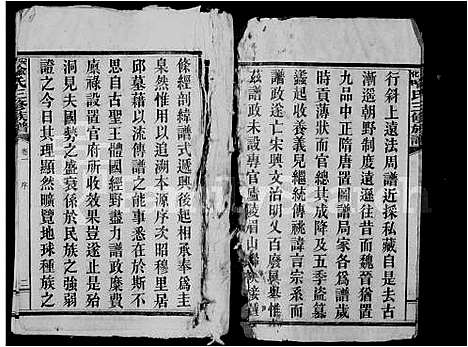 行斜上遠法周譜近採私藏自是去古
漸遙朝野制度遠遜往昔而魏晉猶置
九品中正隋唐置圖譜局家各爲譜歲
有官總其成降及五季盜篡
起收養義兒繼統傳祧諱言宗系而
譜政遂亡宋興文治明乂百廢具舉惟
茲譜政未設專官廬陵眉山聯袂接
修經剖緯譜式遞興後之相承奉爲圭
臬然惟用以追溯本源序昭穆里居
邱墓藉以流傳譜之能事悉在於斯不
思古聖王體國經野盡力譜政糜費
祿設置官府所收效果豈遂止是殆
洞見夫國勢之盛衰係於民族之強弱
證之今日其理顯然曠覽地球種族之
氏三修族譜
卷一
序
二
氏三修族譜